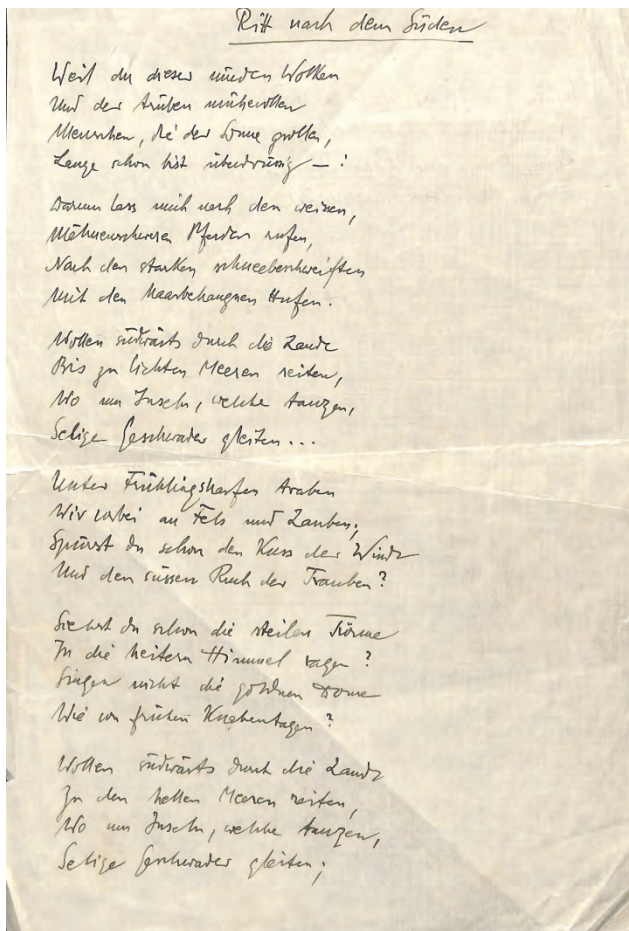 Ritt nach dem Süden
Weil du dieser müden Wolken
Und der trüben mühevollen
Menschen, die der Sonne grollen,
Lange schon bist überdrüssig — :
Darum lass mich nach den weissen,
Mähnenschweren Pferden rufen,
Nach den starken schneebeschweiften
Mit den haarbehangnen Hufen.
Wollen südwärts durch die Lande
Bis zu lichten Meeren reiten,
Wo um Inseln, welche tanzen,
Selige Geschwader gleiten...
Unter Frühlingsharfen traben
Wir vorbei an Fels und Lauben;
Spürst du schon den Kuss der Winde
Und den süssen Ruch der Trauben?
Siehst du schon die steilen Türme
In die heitern Himmel ragen?
Singen nicht die goldnen Dome
Wie von frühen Knabentagen?
Wollen südwärts durch die Lande
Zu den hellen Meeren reiten,
Wo um Inseln, welche tanzen,
Selige Geschwader gleiten;